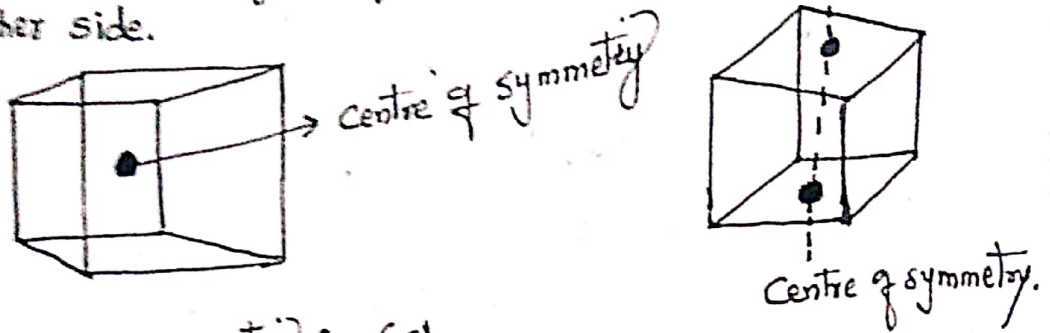 her side.
centre of symmetry
centre of symmetry.